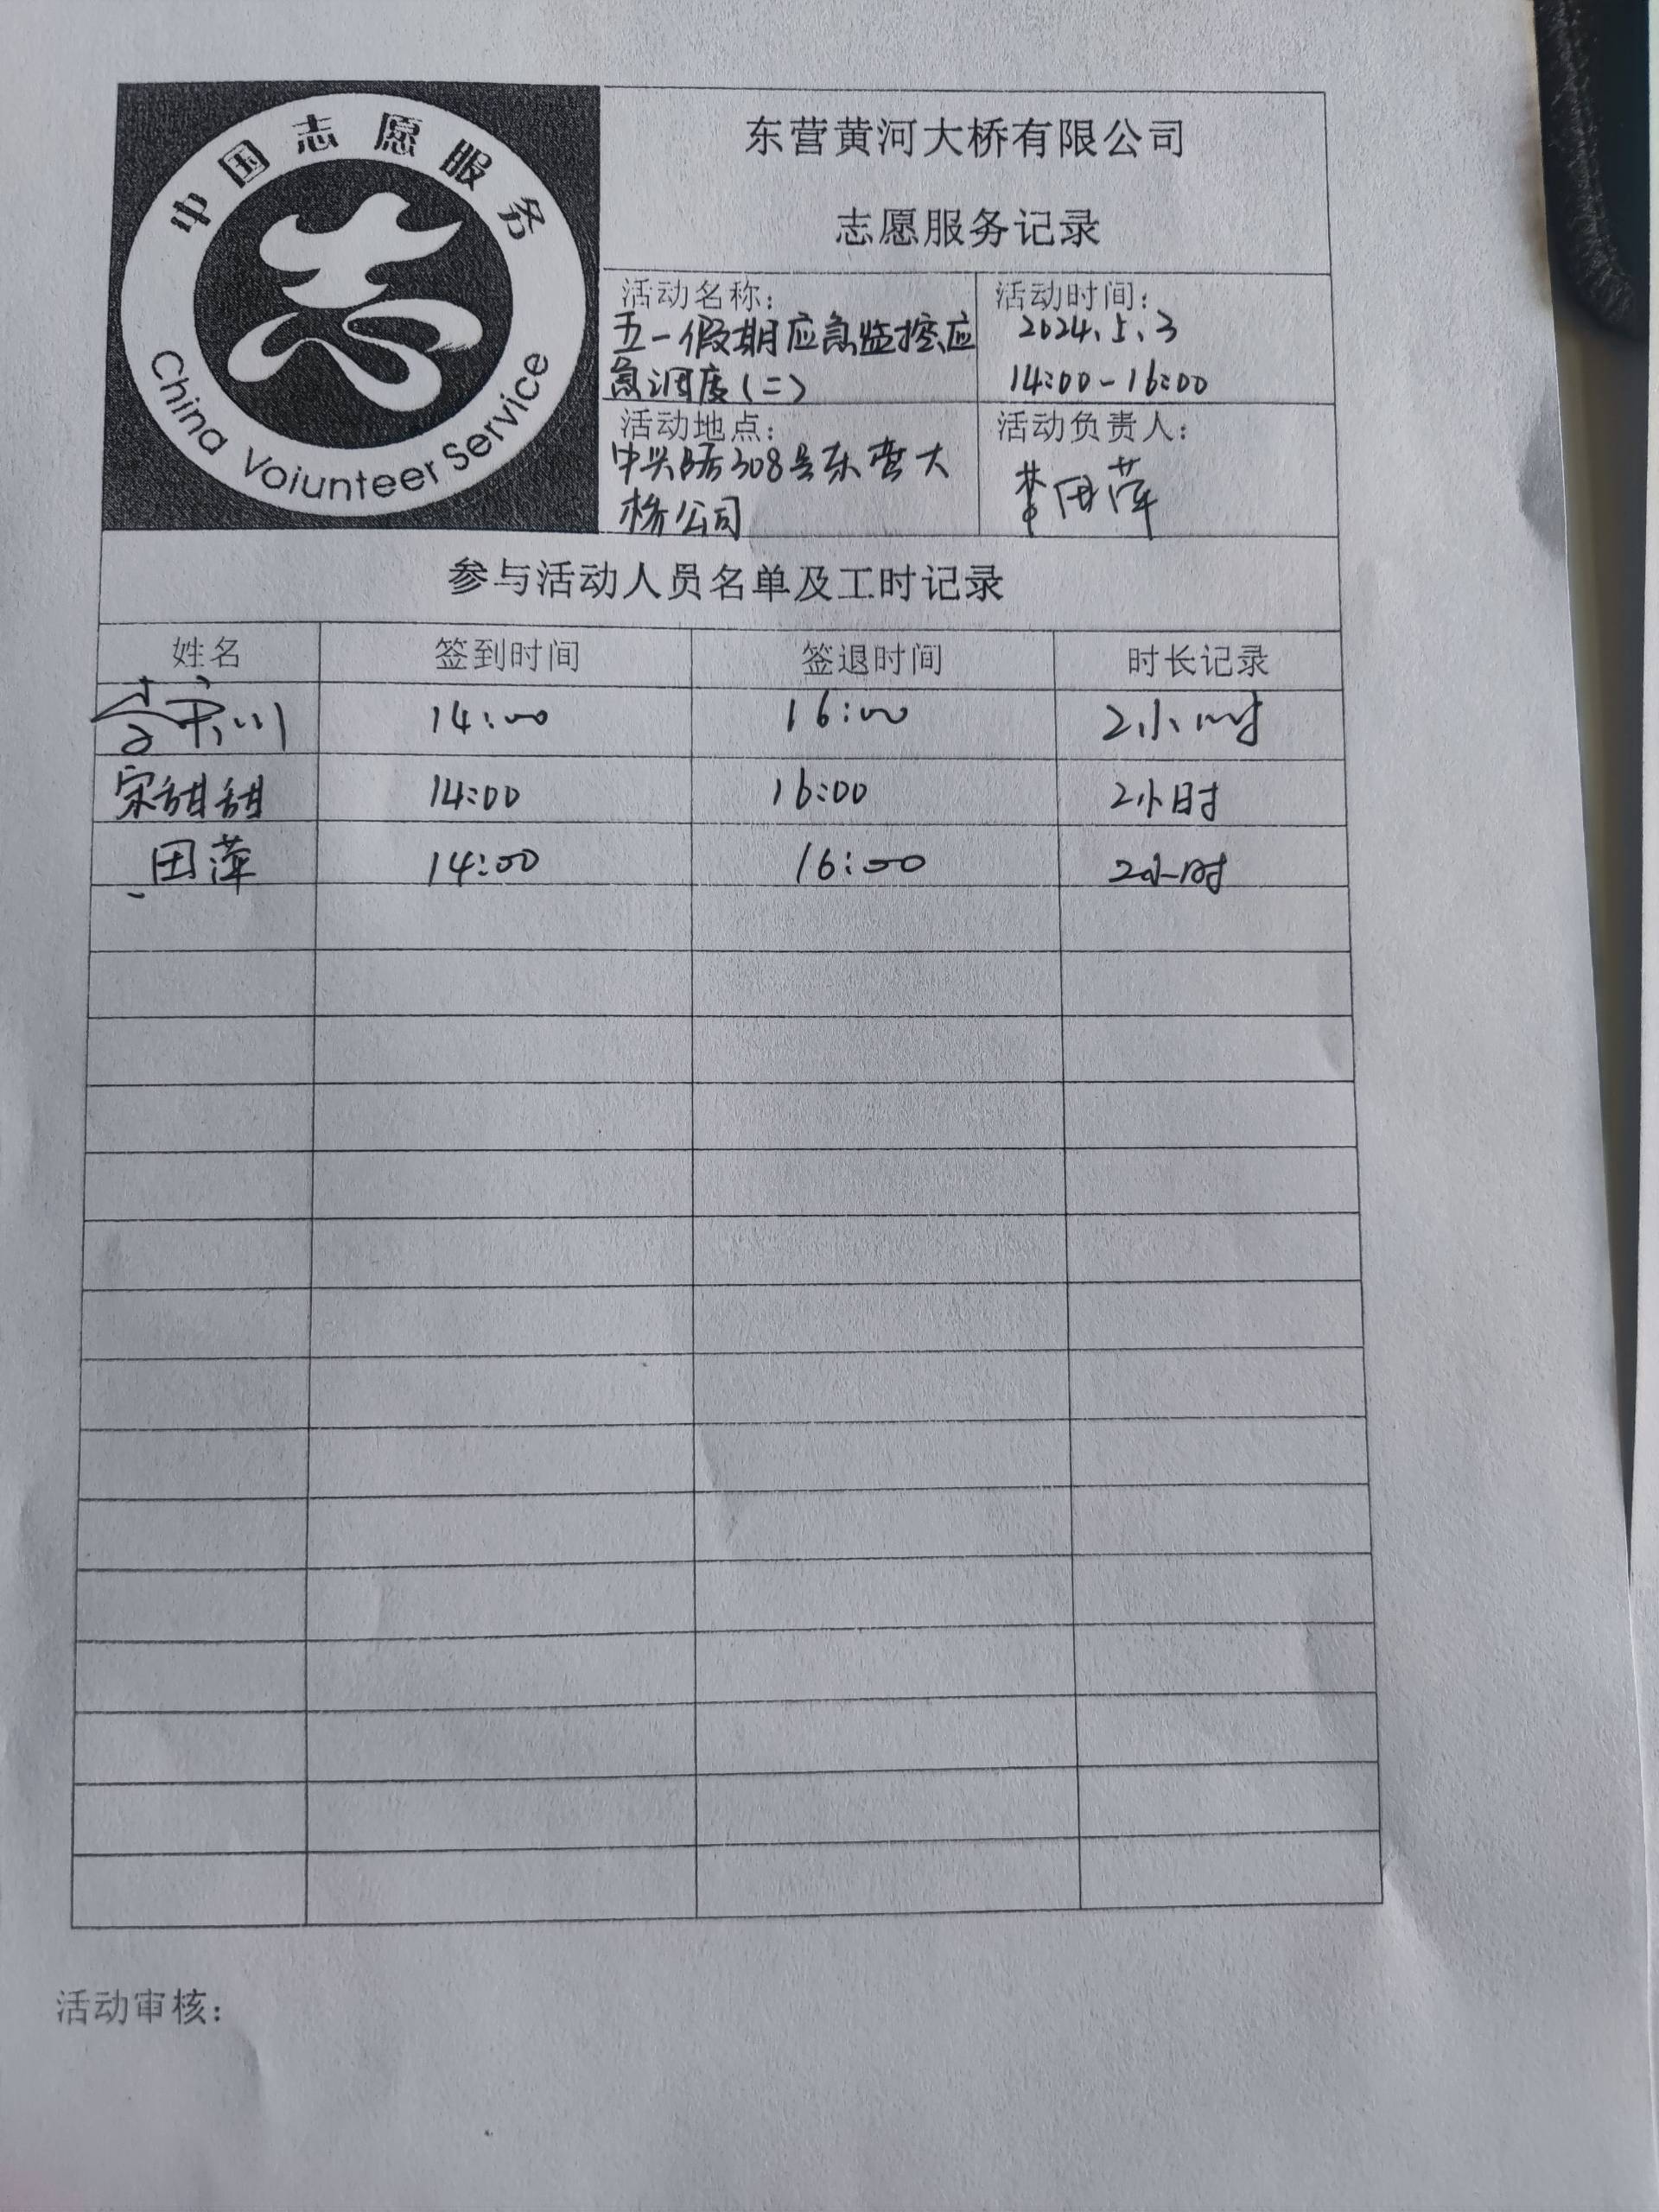 中国志愿服务
China Voiunteer Service
东营黄河大桥有限公司
志愿服务记录
活动名称:
五一假期应急监控应
急调度(二)
活动时间:
2024.5.3
14:00-16:00
活动地点:
中兴路308号东营大
桥公司
活动负责人:
田萍
参与活动人员名单及工时记录
姓名 签到时间 签退时间 时长记录
14:00 16:00 2小时
宋甜甜 14:00 16:00 2小时
田萍 14:00 16:00 2小时
活动审核: